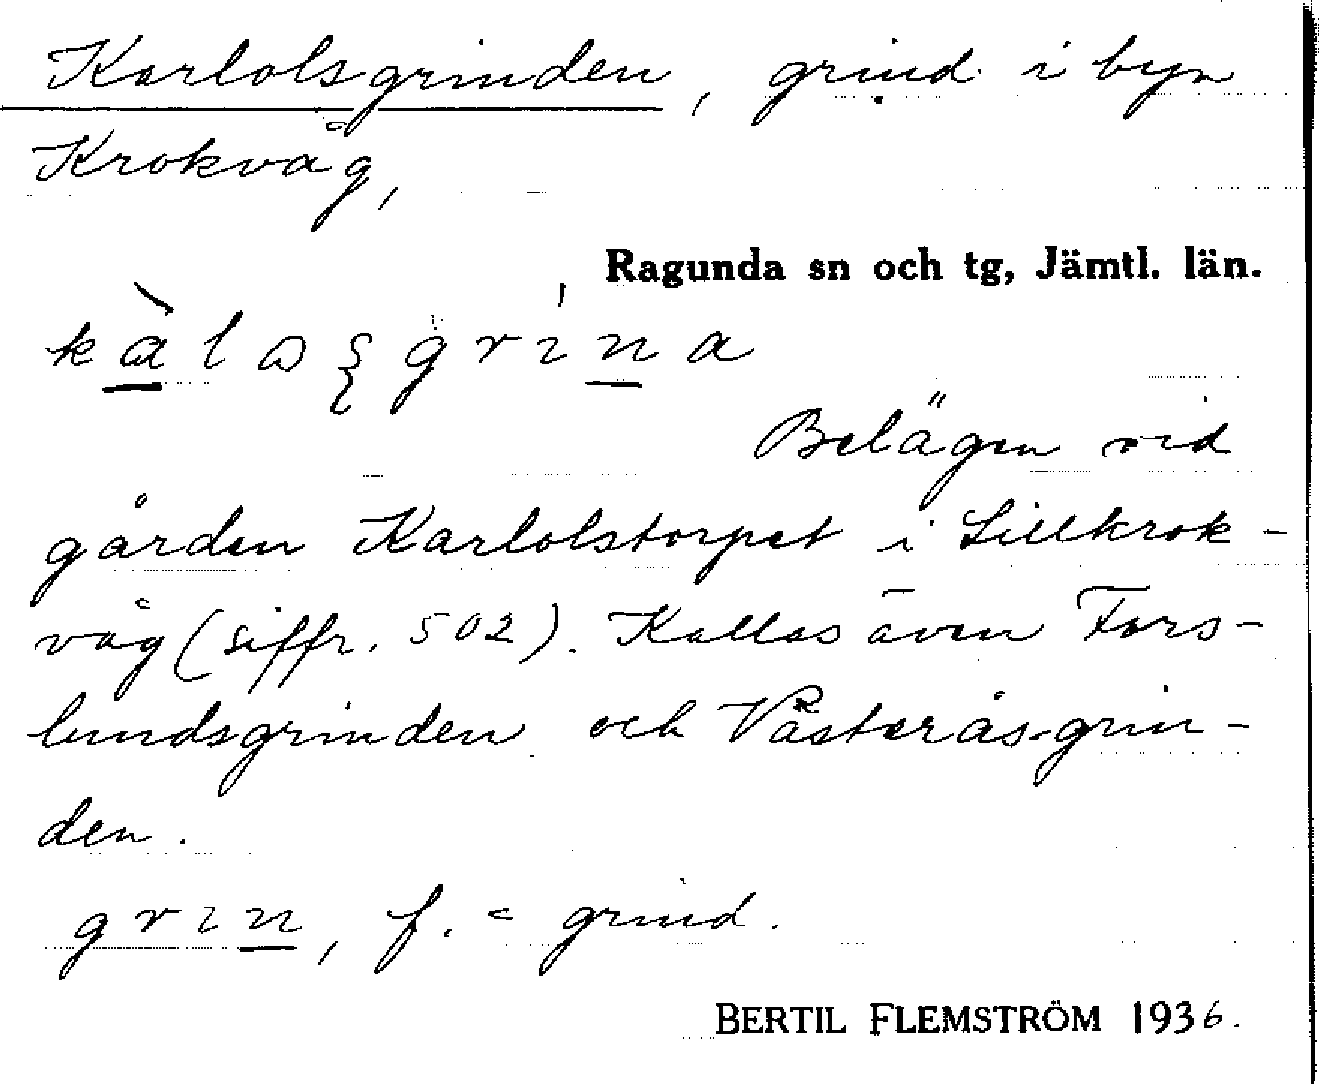 Karlolsgrinden, grind i byn
Krokvåg,
Ragunda sn och tg, Jämtl. län.
Belägen vid
gården Karlolstorpet i Lillkrok-
våg (siffr. 502). Kallas även Fors-
lundsgrinden och Västeråsgrin-
den.
grın, f. = grind.
BERTIL FLEMSTRÖM 1936.